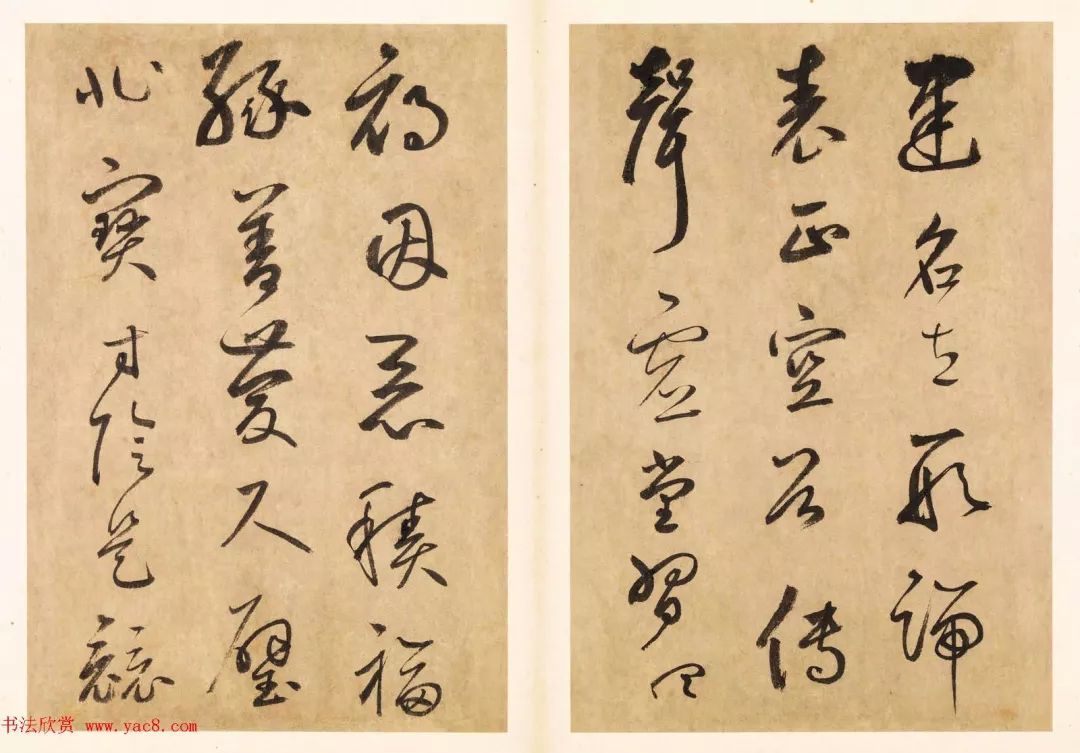 建名立形端
表正空谷傳
聲虛堂習聽
禍因惡積福
緣善慶尺璧
非寶寸陰是競
书法欣赏 www.yac8.com